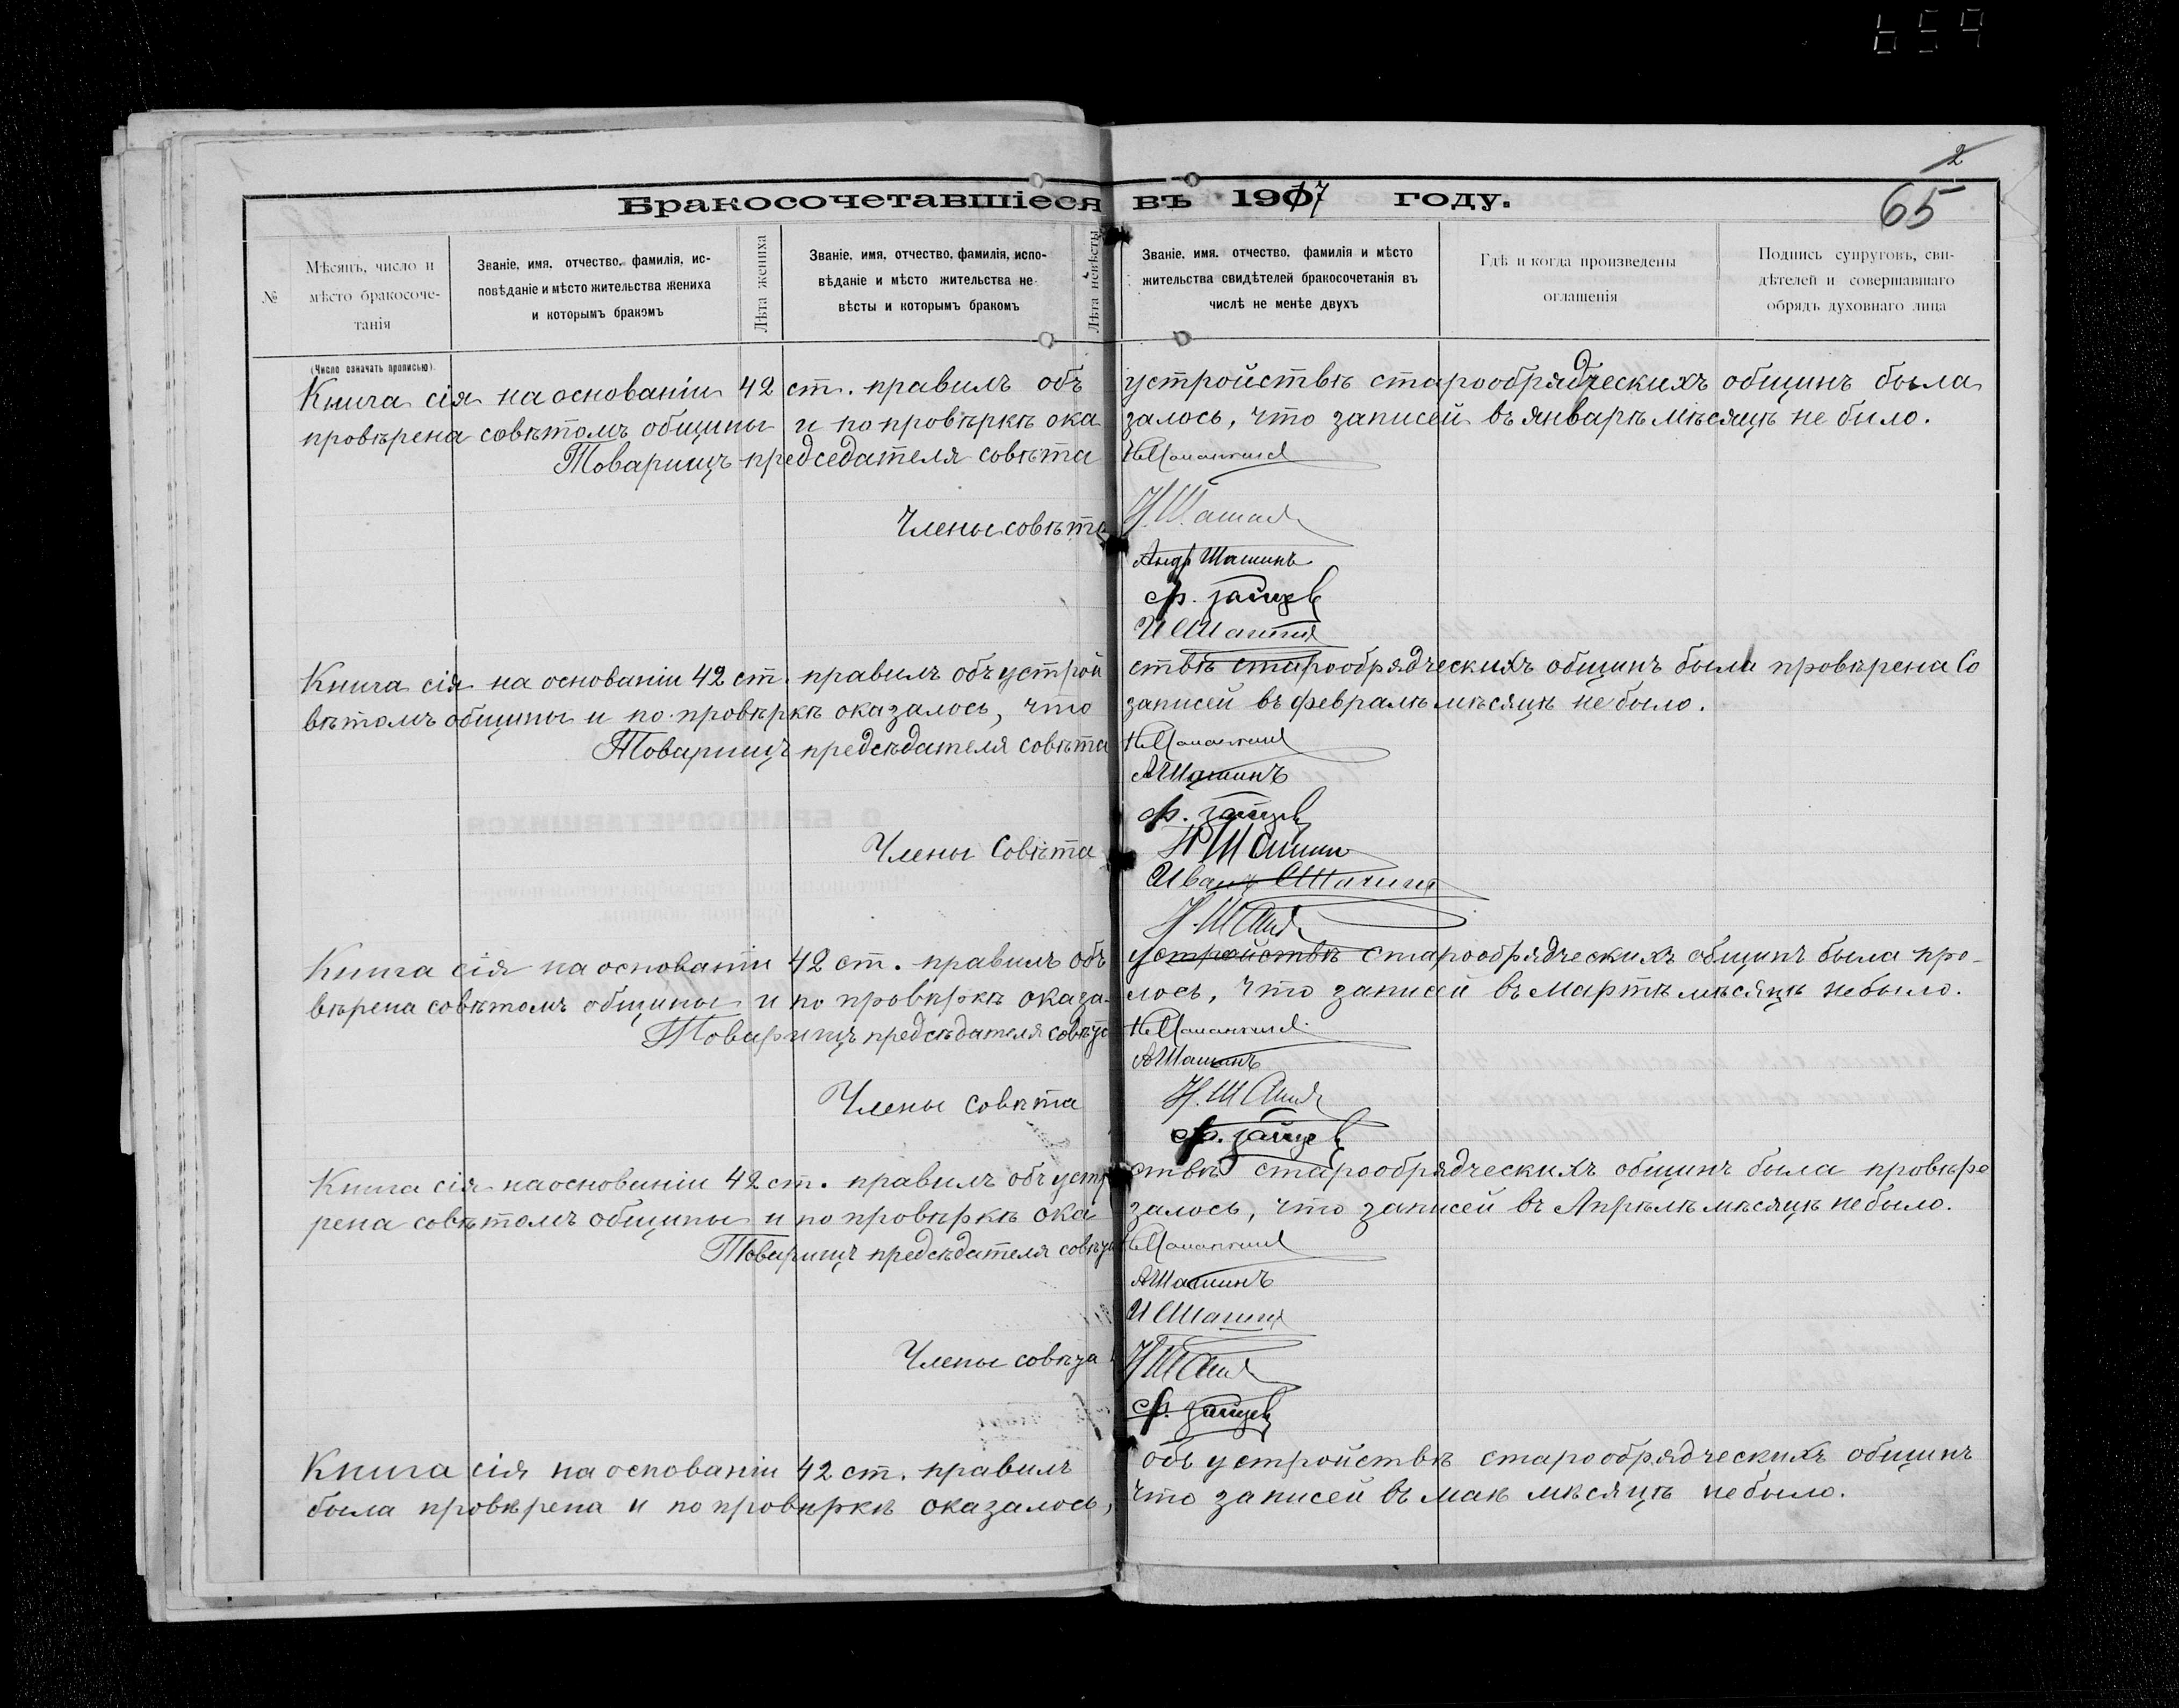 659
2
65
Бракосочетавшіеся въ 1917 году.
№
Мѣсяцъ, число и
мѣсто бракосоче-
танія
(Число означать прописью).
Званіе, имя, отчество, фамилія, ис-
повѣданіе и мѣсто жительства жениха
и которымъ бракомъ
Лѣта жениха
Званіе, имя, отчество, фамилія, испо-
вѣданіе и мѣсто жительства не
вѣсты и которымъ бракомъ
Лѣта невѣсты
Званіе, имя, отчество, фамилія и мѣсто
жительства свидѣтелей бракосочетанія въ
числѣ не менѣе двухъ
Гдѣ и когда произведены
оглашенія
Подпись супруговъ, сви-
дѣтелей и совершавшаго
обрядъ духовнаго лица
Книга сія на основаніи 42 ст. правилъ объ устройствѣ старообрядческихъ общинъ была
провѣрена совѣтомъ общины и по провѣркѣ ока залось, что записей въ январѣ мѣсяцѣ не было.
Товарищъ председателя совѣта
Члены совѣта Н. Шашин
Андр Шашинъ
Ф. Зайцев
И Шашин
Книга сія на основаніи 42 ст. правилъ объ устрой ствѣ старообрядческихъ общинъ была провѣрена Со
вѣтомъ общины и по провѣркѣ оказалось, что записей въ февралѣ мѣсяцѣ не было.
Товарищъ предсѣдателя совѣта
АШашинъ
Ф. Зайцев
Члены Совѣта Н Шашин
Иван Шашин
Н. Шашин
Книга сія на основаніи 42 ст. правилъ объ устройствѣ старообрядческихъ общинъ была про-
вѣрена совѣтомъ общины и по провѣркѣ оказа- лось, что записей въ мартѣ мѣсяцѣ не было.
Товарищъ предсѣдателя совѣта
АШашинъ
Члены совѣта Н. Шашин
Ф. Зайцев
Книга сія на основаніи 42 ст. правилъ объ устр ствѣ старообрядческихъ общинъ была провѣре
рена совѣтомъ общины и по провѣркѣ ока залось, что записей въ Апрѣлѣ мѣсяцѣ не было.
Товарищъ предсѣдателя совѣта
АШашинъ
И Шашин
Члены совѣта Н Шашин
Ф. Зайцев
Книга сія на основаніи 42 ст. правилъ объ устройствѣ старообрядческихъ общинъ
была провѣрена и по провѣркѣ оказалось, что записей въ маѣ мѣсяцѣ не было.